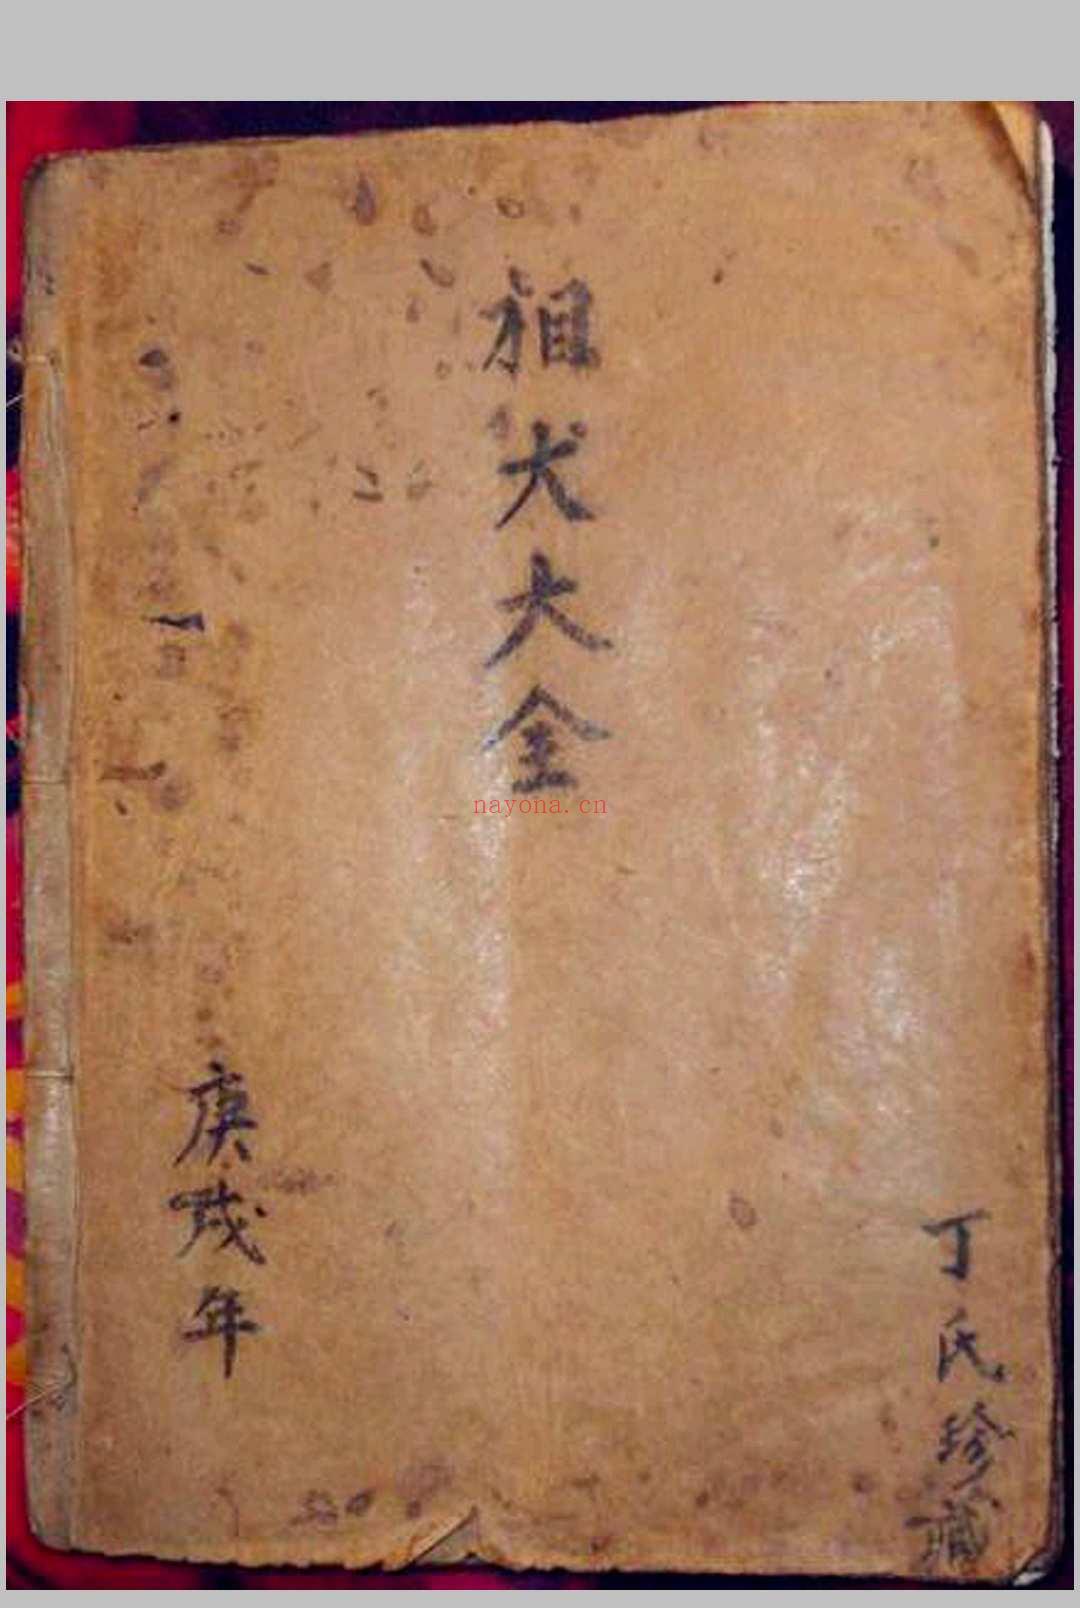 丁氏珍藏
相犬大全
nayona.cn
庚戌年